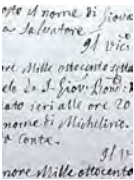 opto il nome di Giova
a Salvatore
Il vice
ore Mille ottocento setta
de Da S. Giov: Dom:
ato ieri alle ore 20
nome di Michelino
a Conte.
Il vi
nore Mille ottocento